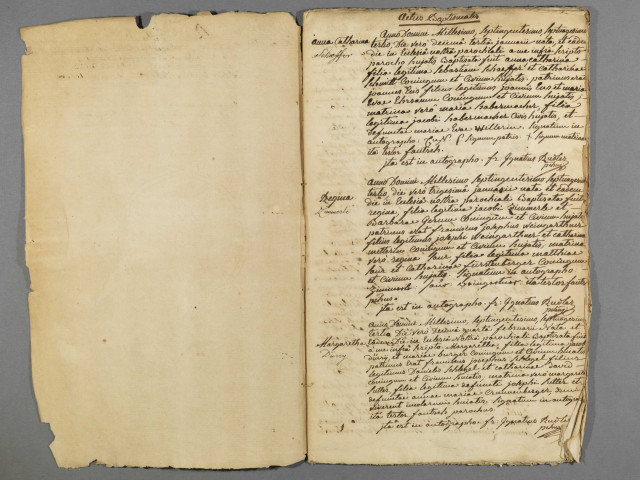 Actus Baptismales
anna Catharina
Schaffer
Anno Domini Millesimo, Septingentesimo, Septuagesimo
tertio, die vero decima tertia januarii nata, et eadem
die in Eclesia nostra parochiali a me infra scripto
parocho hujatis Baptisata fuit anna catharina
filia legitima sebastiani schaffer et catharinae
schmitt Conjugum et Civium hujatis. patrinus erat
joannes Eus filius legitimus joannis Eus et maria
Evae Ehrsamm Conjugum et Civium hujatis,
matrina vero maria habermacher filia
legitima jacobi habermacher Civis hujatis, et
Defunctae mariae Evae Willerin. signatum in
autographo signum patris signum matrinae
ita testor fautsch.
jta est in autographo. fr. Ignatius Ruesler
Regina
Zimmerle
Anno Domini Millesimo, septingentesimo, septuagesimo
tertio, die vero trigesima januarii nata et eadem
die in Eclesia nostra parochiali Baptisata fuit
regina, filia legitima jacobi Zimmerle et
Barbara Gerum Conjugum et Civium hujatis
patrinus erat franciscus josephus Weingarthner
filius legitimus josephi Weingarthner et catharina
Conjugum et Civium hujatis, matrina
vero regina Saur, filia legitima matthiae
Saur et Catharina furstenberger Conjugum
et Civium hujatis. signatum in autographo
Zimmerle Saur Baingartner ita testor fautsch
parochus.
jta est in autographo. fr. Ignatius Ruesler
Margaretha
Dürry
Anno Domini Millesimo, septingentesimo, septuagesimo
tertio die vero Decima quarta februarii Nata et
Eadem Die in Eclesia Nostra parochiali Baptisata fuit
a me infra scripto Margaretha, filia legitima jacobi
Dürry et mariae burger Conjugum et Civium
patrinus erat franciscus josephus schlegel filius
legitimus Danielis schlegel et catharinae david
conjugum et Civium hujatis, matrina vero margaretha
sutter, filia legitima defuncti josephi sutter et
defunctae annae mariae
incolarum hujatis, signatum in autographo
ita testor fautsch parochus.
jta est in autographo. fr. Ignatius Ruesler